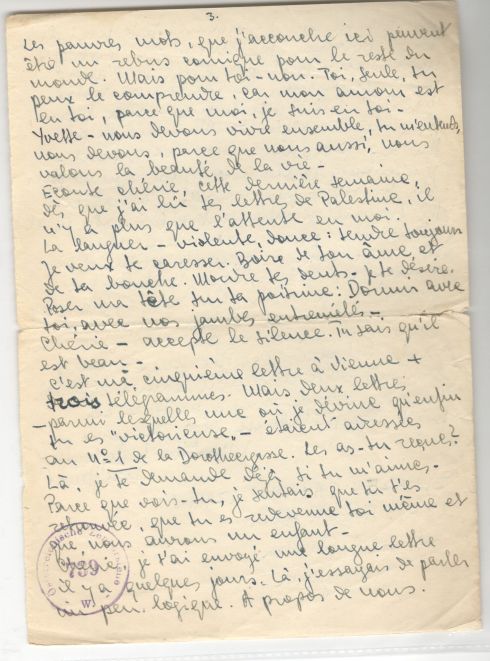 3.
Les pauvres mots, que j'accouche ici peuvent
être un rebus comique pour le reste du
monde. Mais pour toi - non. Toi, seule, tu
peux le comprendre, car mon amour est
en toi, parce que moi, je suis en toi -
Yvette - nous devons vivre ensemble, tu m'entends,
nous devons, parce que nous aussi, nous
valons la beauté de la vie -
Ecoute chérie, cette dernière semaine,
dès, que j'ai lu tes lettres de Palestine, il
n'y a plus que l'attente en moi.
La languer - violente, douce: tendre toujours
Je veux te caresser. Boire de ton âme, et
de ta bouche. Mordre tes dents - je te désire.
Poser ma tête sur ta poitrine. Dormir avec
toi, avec nos jambes entremêlés -
Chérie - accepte le silence. Tu sais qu'il
est beau -
C'est ma cinquième lettre à Vienne +
trois télégrammes. Mais deux lettres
- parmi lesquelles une où je dévine qu'enfin
tu es "victorieuse" - étaient adressées
au Nº 1 de la Dorotheergasse. Les as-tu reçue?
Là, je te demande déjà si tu m'aimes -
Parce que vois-tu, je sentais que tu t'es
retrouvée, que tu es redevenue toi même et
que nous aurons un enfant -
je t'ai envoyé une longue lettre
il y a quelques jours. Là j'essayais de parler
un peu logique. A propos de nous.
Österreichische Zensurstelle
739
W.